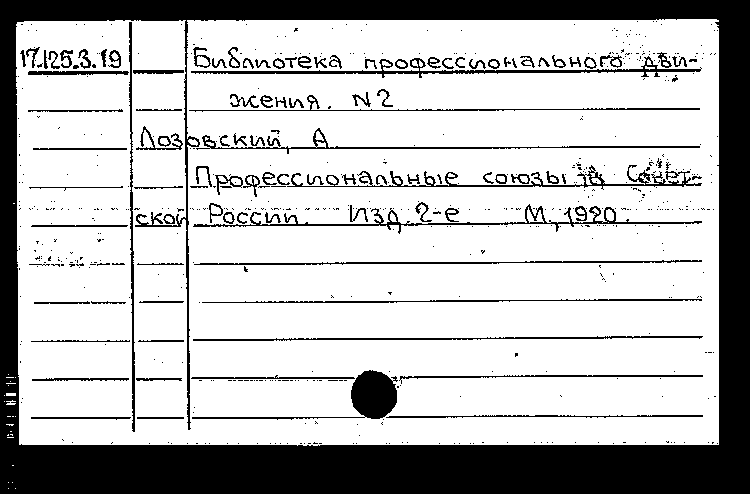 17.125.3.19 Библиотека профессионального дви-
жения. N2
Лозовский, А
Профессиональные союзы в Совет-
ской России. Изд. 2-е. М., 1920.